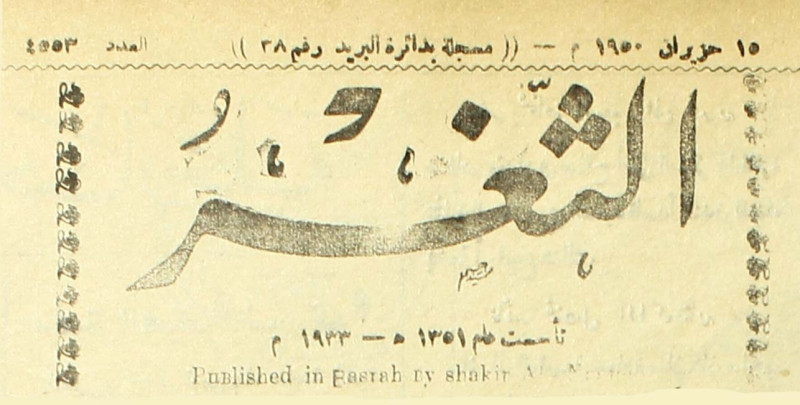 ١٥ حزيران ١٩٥٠ م — (( مسجلة بدائرة البريد رقم ٣٨ )) العدد ٤٥٥٣
الثّغْرُ
تأسست عام ١٣٥١ ه — ١٩٣٣ م
Published in Basrah By shakir